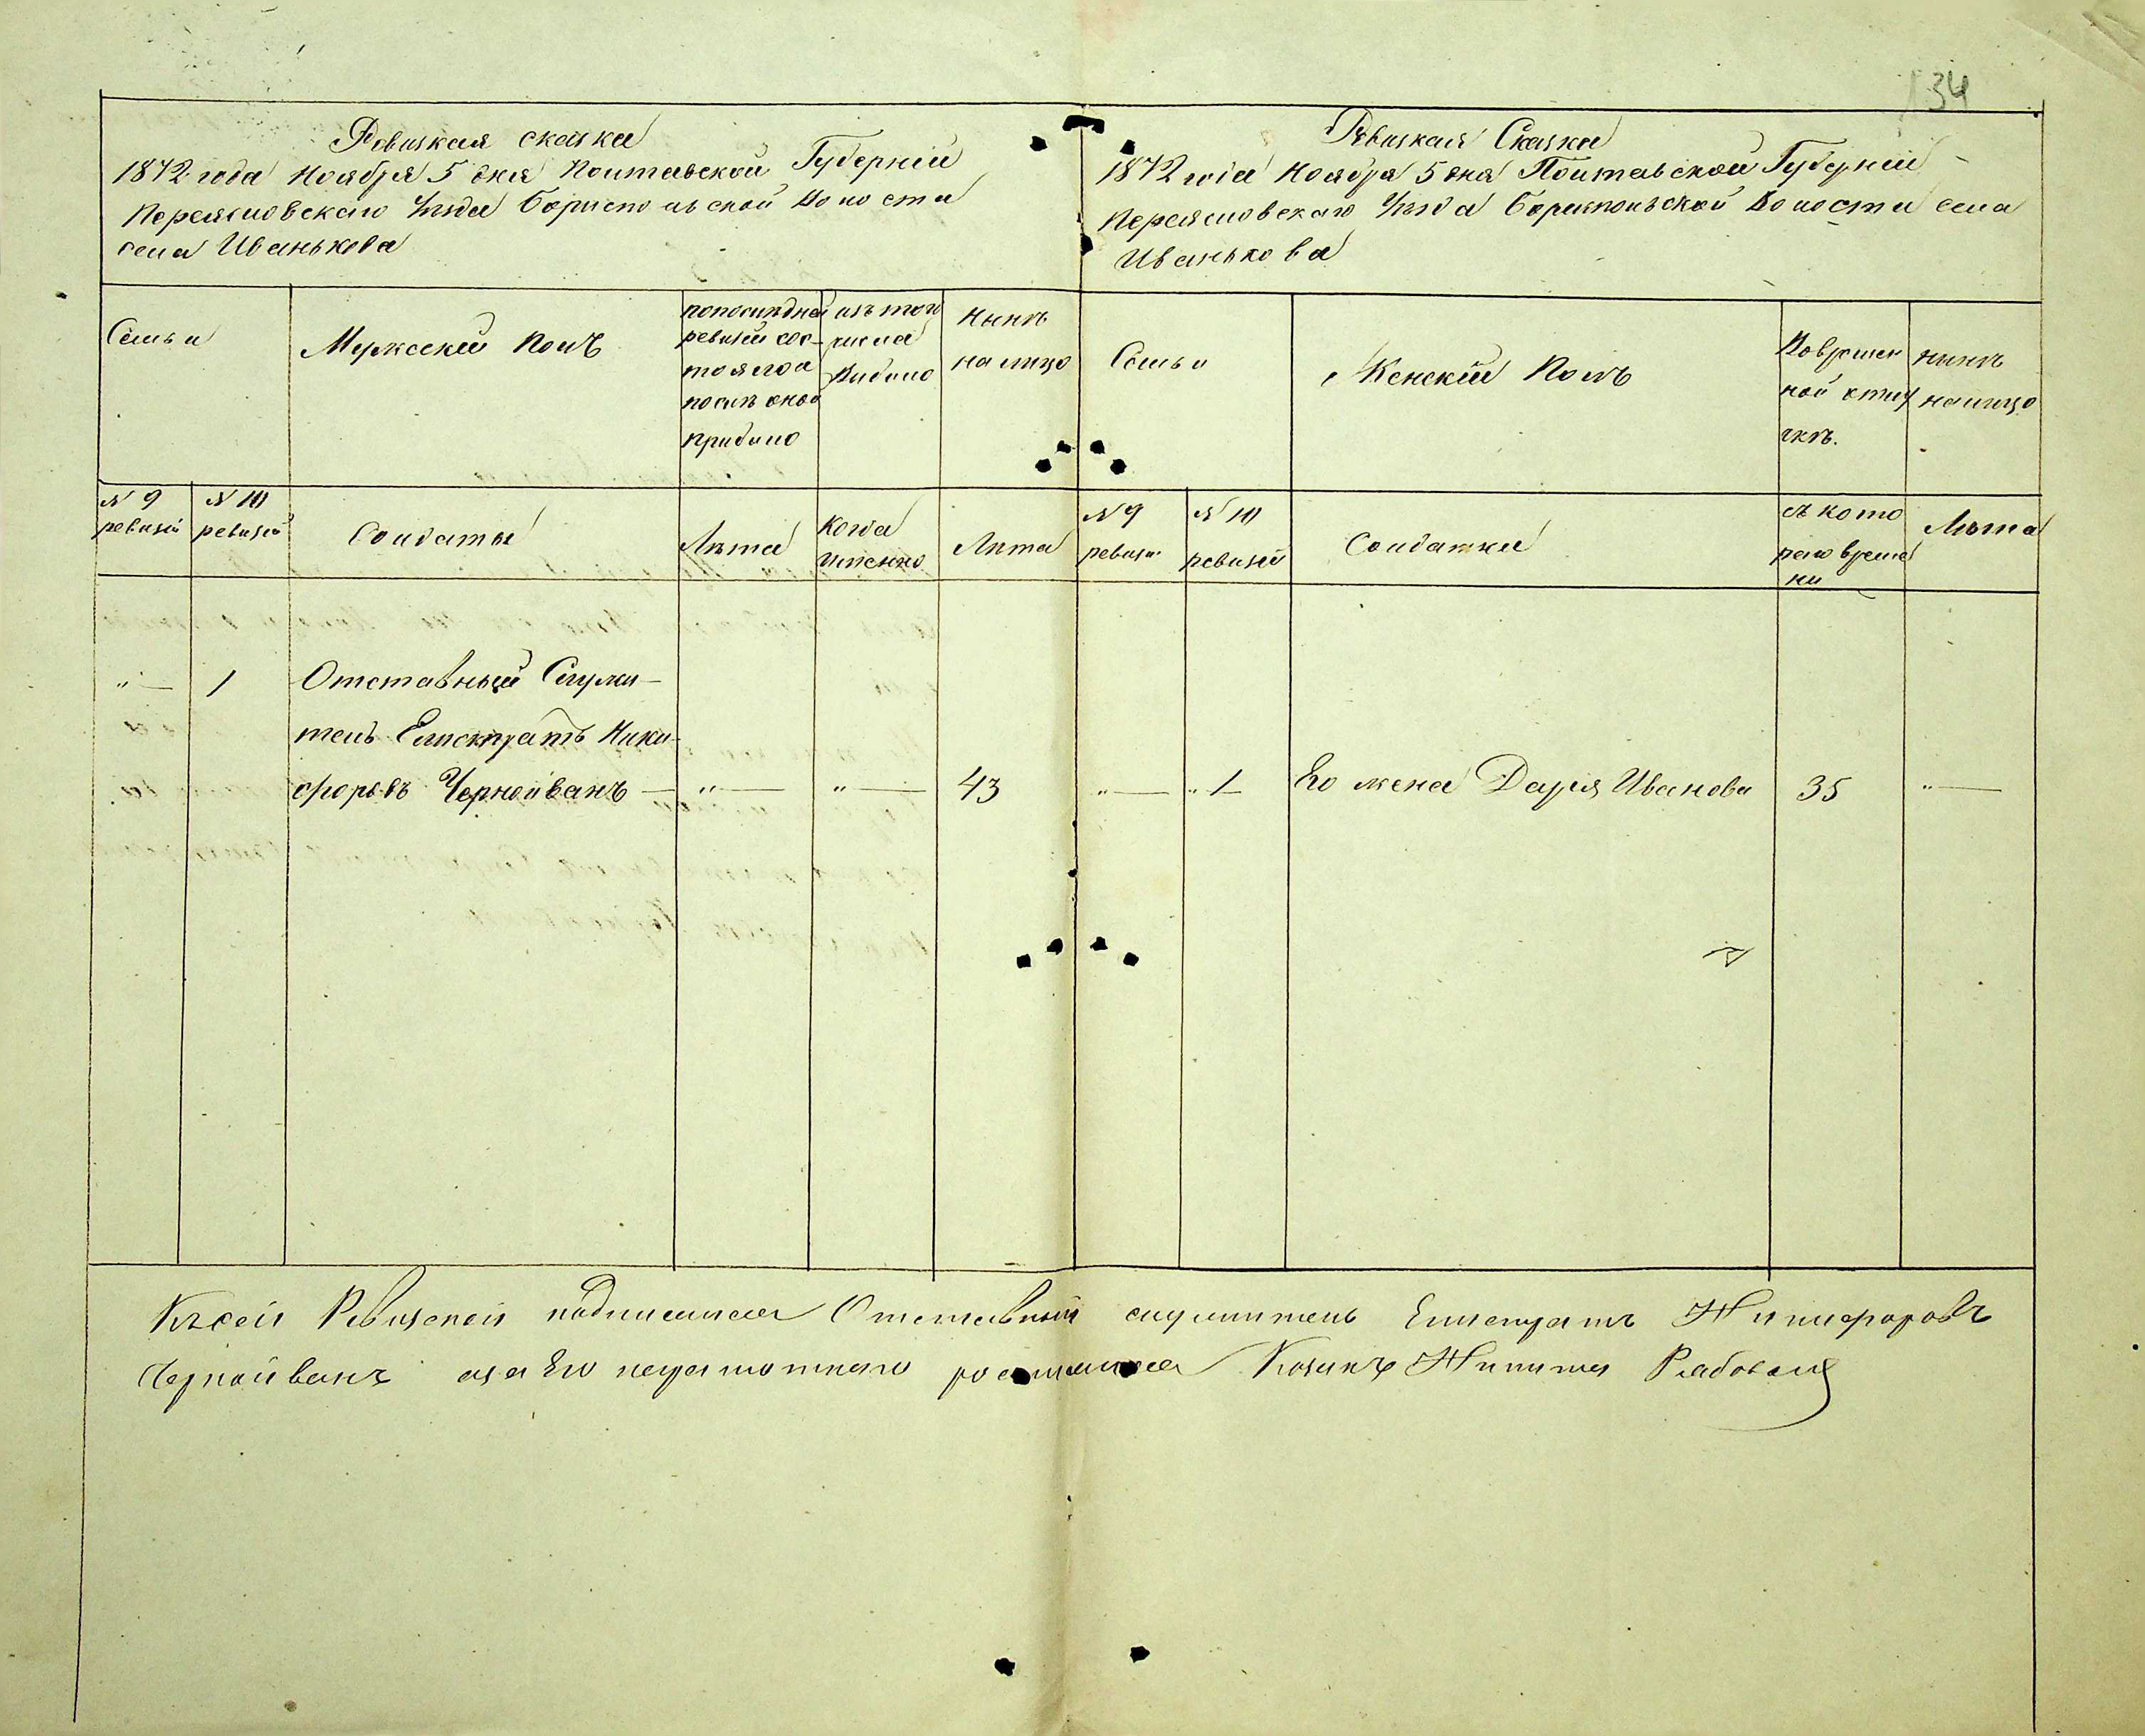 34
Ревизкая сказка
1872 года Ноября 5 дня Полтавской Губерніи
Переяславскаго Уезда Бориспольской Волости
села Иванькова
Ревизкая Сказка
1872 года Ноября 5 дня Полтавской Губерніи
Переясловскаго Уезда Бориспольской Волости села
Иванькова
Семьи
Мужескій Полъ
попоследней
ревизіи сос-
тояло а
после оной
прибыло
изъ того
числа
выбыло
Ныне
на лицо
Семьи
Женскій Полъ
Вовремен
ной отлу
чке.
ныне
налицо
N 9
ревизіи
N 10
ревизіи
Солдаты
Лета
Когда
именно
Лета
N 9
ревизіи
N 10
ревизіи
Солдатки
съ кото
раго време
ни
Лета
„— 1 Отставный Служи-
тель Елистратъ Ники-
форовъ Чернойванъ — „— „— 43 „— „ 1 Его жена Дарія Иванова 35 „—
Къ сей Ревизской подписался Отставный служитель Елистратъ Никифоровъ
Чернойванъ аза Его неграмотнаго росписался Козакъ Никита